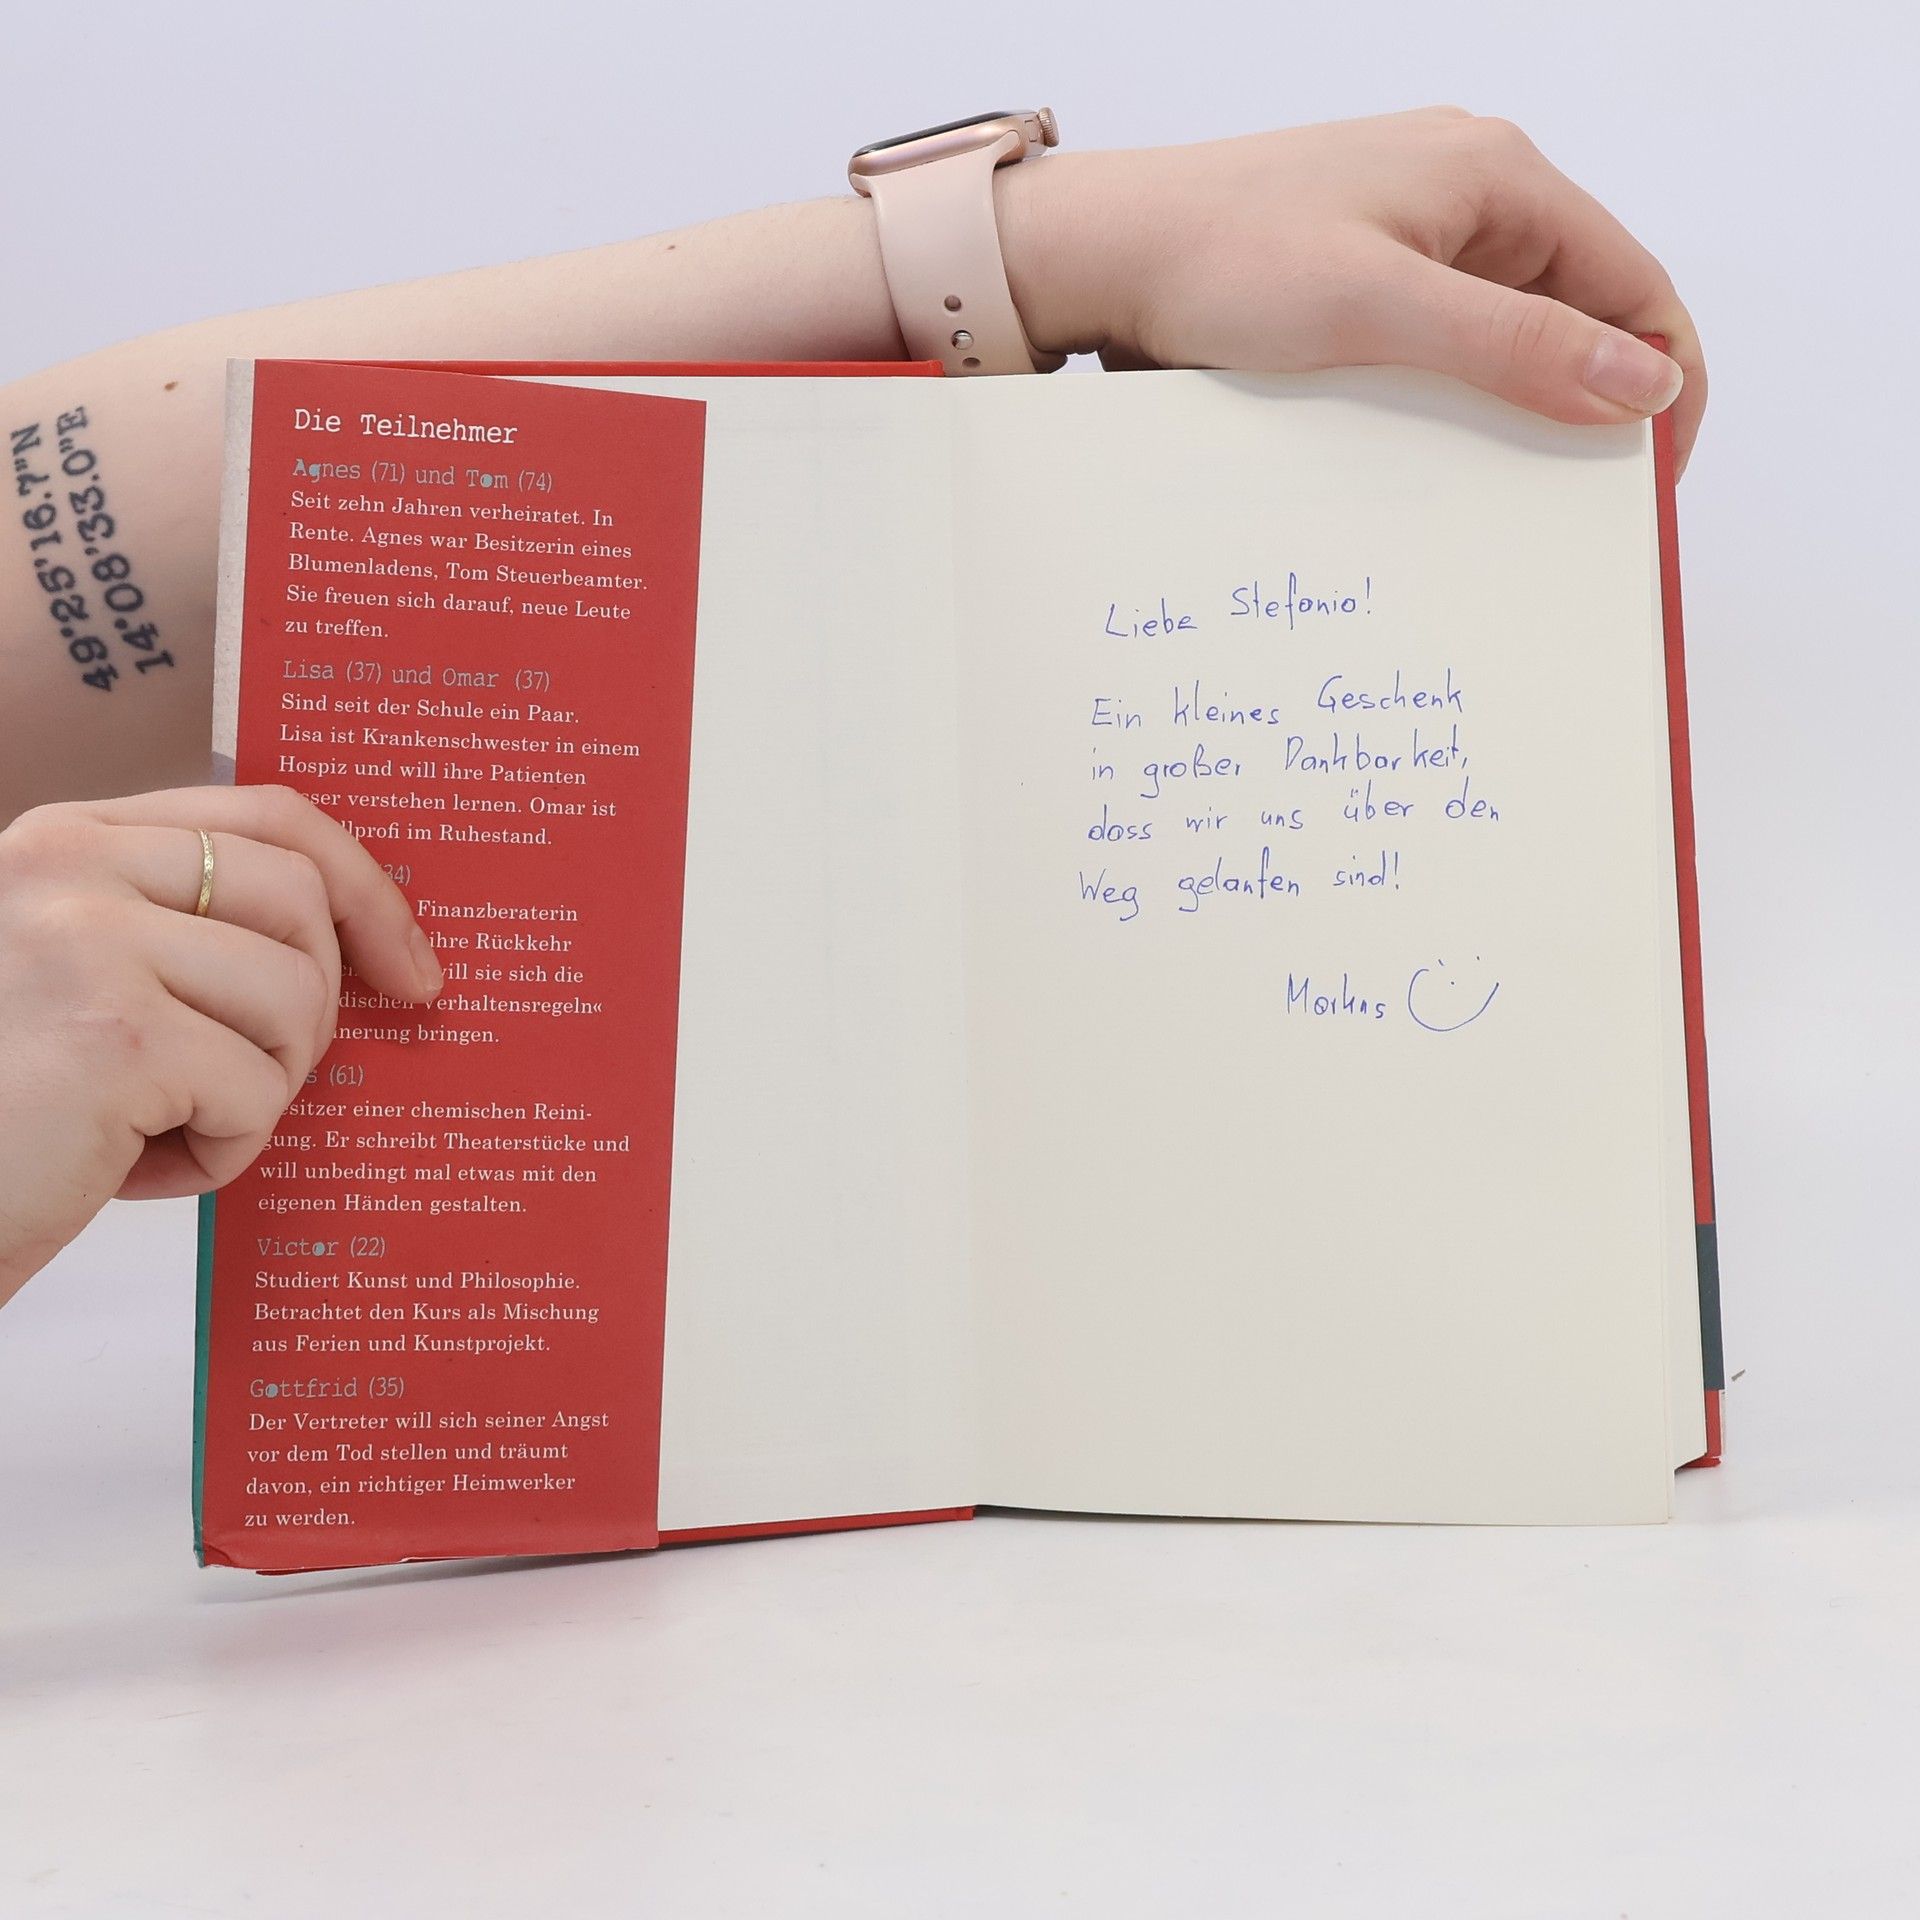 49°25'16.7"N
14°08'33.0"E
Die Teilnehmer
Agnes (71) und Tom (74)
Seit zehn Jahren verheiratet. In
Rente. Agnes war Besitzerin eines
Blumenladens, Tom Steuerbeamter.
Sie freuen sich darauf, neue Leute
zu treffen.
Lisa (37) und Omar (37)
Sind seit der Schule ein Paar.
Lisa ist Krankenschwester in einem
Hospiz und will ihre Patienten
verstehen lernen. Omar ist
im Ruhestand.
Finanzberaterin
ihre Rückkehr
sie sich die
Verhaltensregeln«
bringen.
(61)
einer chemischen Reini-
gung. Er schreibt Theaterstücke und
will unbedingt mal etwas mit den
eigenen Händen gestalten.
Victor (22)
Studiert Kunst und Philosophie.
Betrachtet den Kurs als Mischung
aus Ferien und Kunstprojekt.
Gottfrid (35)
Der Vertreter will sich seiner Angst
vor dem Tod stellen und träumt
davon, ein richtiger Heimwerker
zu werden.
Liebe Stefania!
Ein kleines Geschenk
in großer Dankbarkeit,
dass wir uns über den
Weg gelaufen sind!
Markus